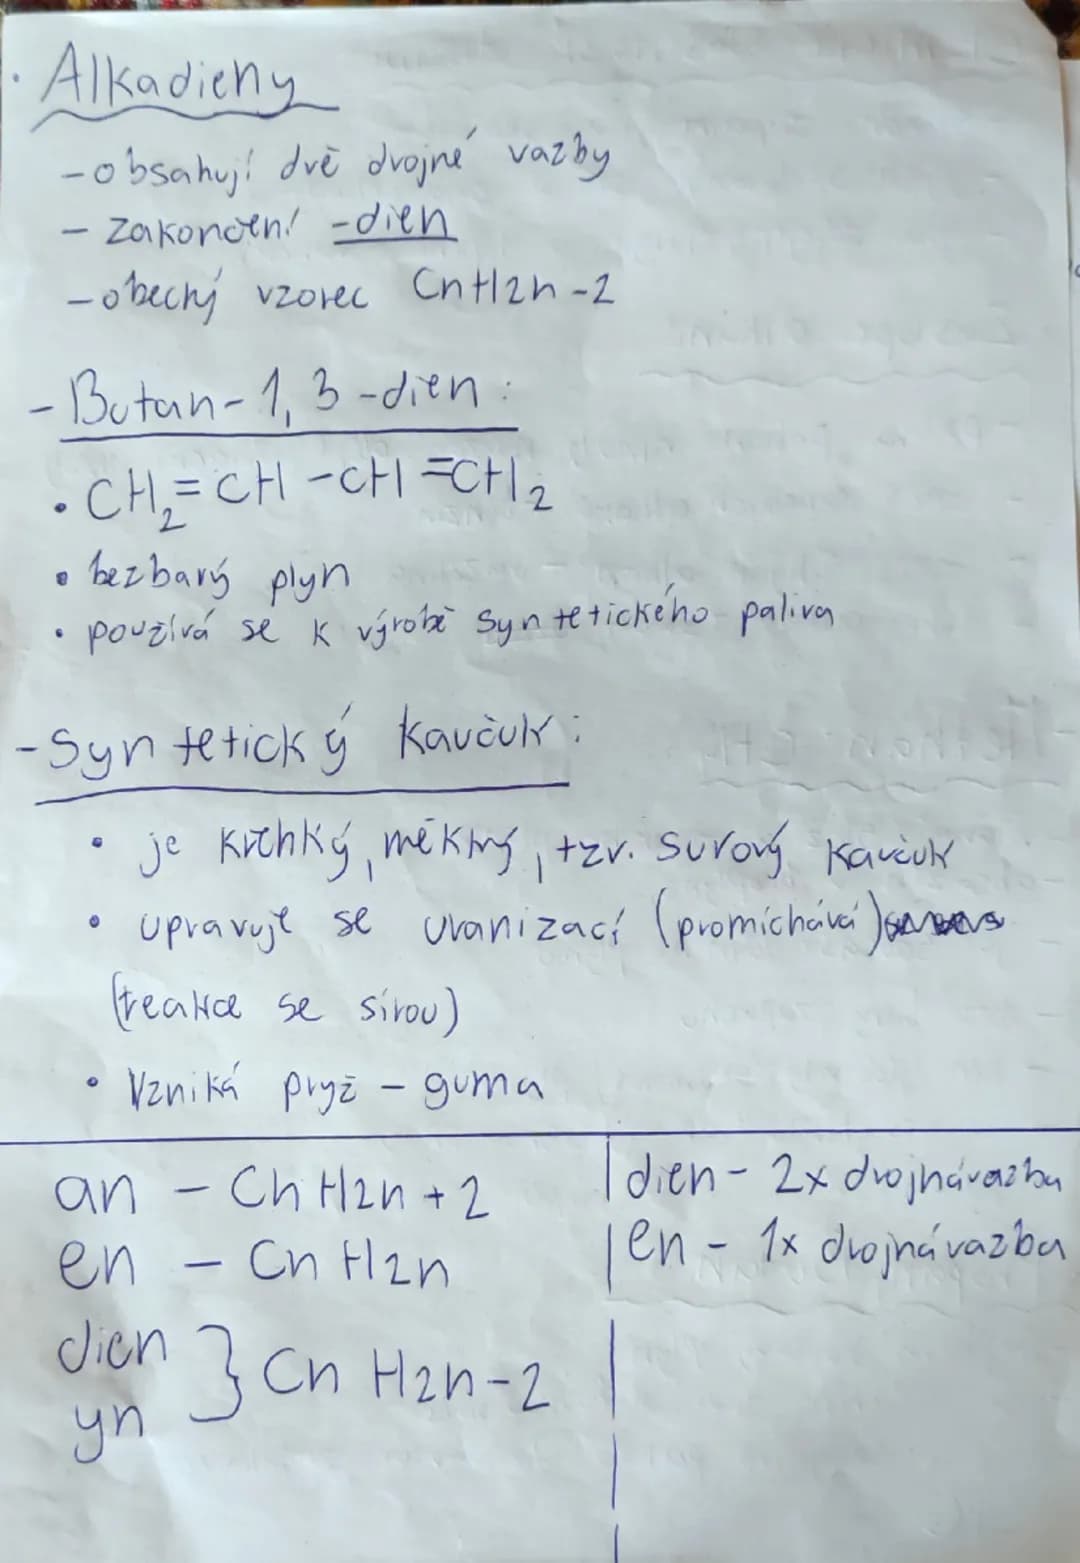 · Alkadieny
- obsahují dvě drojné vazby
- zakončení -dien
- obecný vzorec CnH2n-2
- Butan-1,3-dien:
• CH₂=CH-CH=CH₂
• bezbarvý plyn
• použivá se k výrobě syntetického paliva
- Syntetický kaučuk:
• je křehký, měkký, tzv. surový kaučuk
• upravuje se vlanizací (promíchává)
(reakce se sírou)
• Vzniká pryž - guma
an - CnH2n+2
en - CnH2n
dien
yn } CnH2n-2
dien - 2x drojnávazba
en - 1x drojnávazba